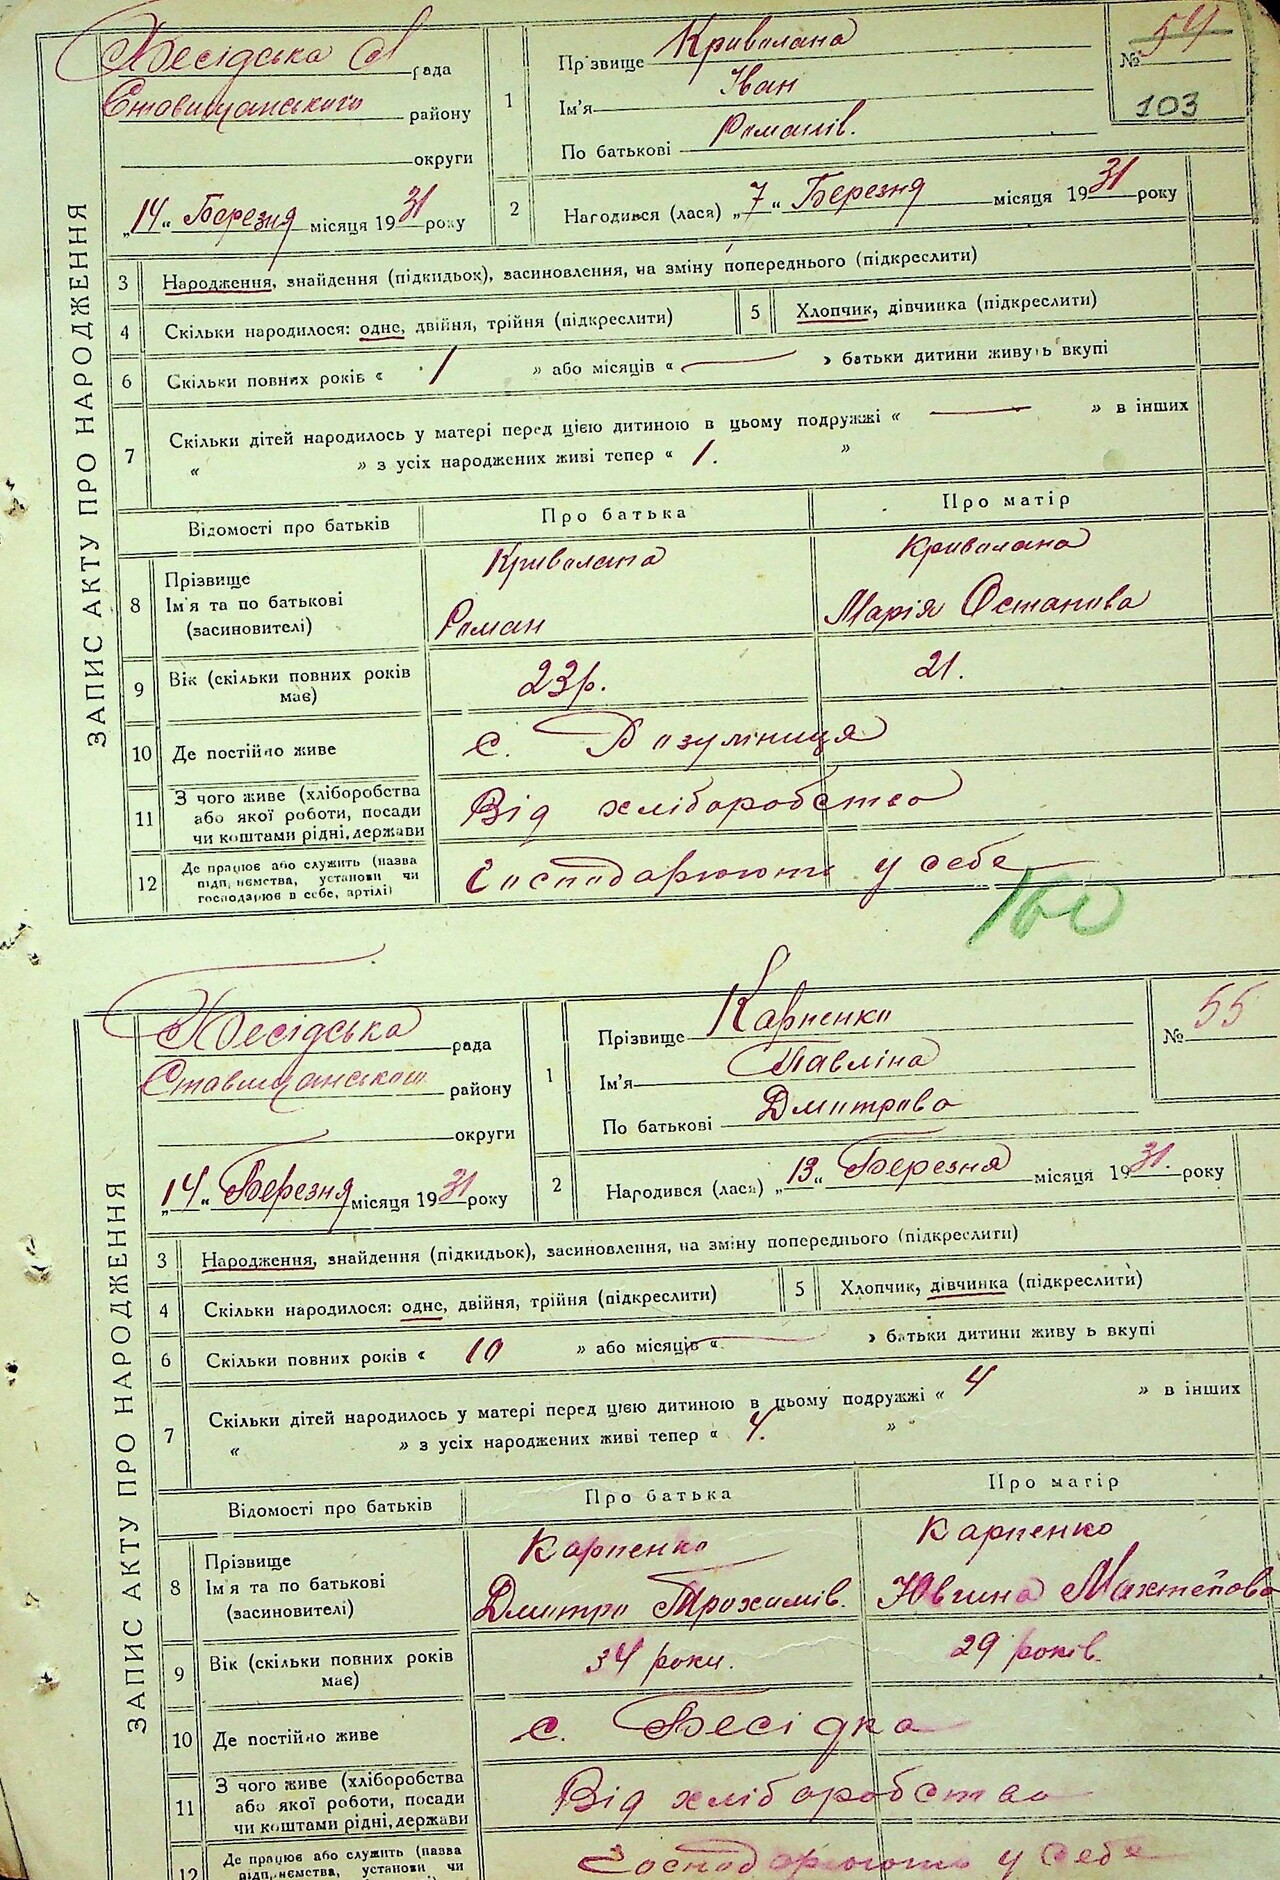 ЗАПИС АКТУ ПРО НАРОДЖЕННЯ
Бесідська с/ рада
Ставищанського району
округи
„14“ Березня місяця 1931 року
1
Прізвище Криволапа
Ім'я Іван
По батькові Романів.
№ 54
103
2
Народився (лася) „7“ Березня місяця 1931 року
3 Народження, знайдення (підкидьок), засиновлення, на зміну попереднього (підкреслити)
4 Скільки народилося: одне, двійня, трійня (підкреслити) 5 Хлопчик, дівчинка (підкреслити)
6 Скільки повних років « 1 » або місяців « — » батьки дитини живуть вкупі
7 Скільки дітей народилось у матері перед цією дитиною в цьому подружжі « — » в інших
« » з усіх народжених живі тепер « 1. »
Відомості про батьків Про батька Про матір
8 Прізвище Криволапа Криволапа
Ім'я та по батькові Роман Марія Остапова
(засиновителі)
9 Вік (скільки повних років має) 23 р. 21.
10 Де постійно живе с. Розумниця
11 З чого живе (хліборобства
або якої роботи, посади
чи коштами рідні, держави
Від хліборобства
12 Де працює або служить (назва
підп, иємства, установи чи
господарює в себе, артілі)
Господарюють у себе
160
ЗАПИС АКТУ ПРО НАРОДЖЕННЯ
Бесідська рада
Ставищанського району
округи
„14“ Березня місяця 1931 року
1
Прізвище Карпенко
Ім'я Павліна
По батькові Дмитрова
№ 55
2
Народився (лася) „13“ Березня місяця 1931. року
3 Народження, знайдення (підкидьок), засиновлення, на зміну попереднього (підкреслити)
4 Скільки народилося: одне, двійня, трійня (підкреслити) 5 Хлопчик, дівчинка (підкреслити)
6 Скільки повних років « 10 » або місяців « — » батьки дитини живуть вкупі
7 Скільки дітей народилось у матері перед цією дитиною в цьому подружжі « 4 » в інших
« » з усіх народжених живі тепер « 4. »
Відомості про батьків Про батька Про матір
8 Прізвище Карпенко Карпенко
Ім'я та по батькові Дмитро Трохимів. Ювгина
(засиновителі)
9 Вік (скільки повних років має) 34 роки. 29 років.
10 Де постійно живе с. Бесідка
11 З чого живе (хліборобства
або якої роботи, посади
чи коштами рідні, держави
Від хліборобства
12 Де працює або служить (назва
підп, иємства, установи чи
Господарюють у себе